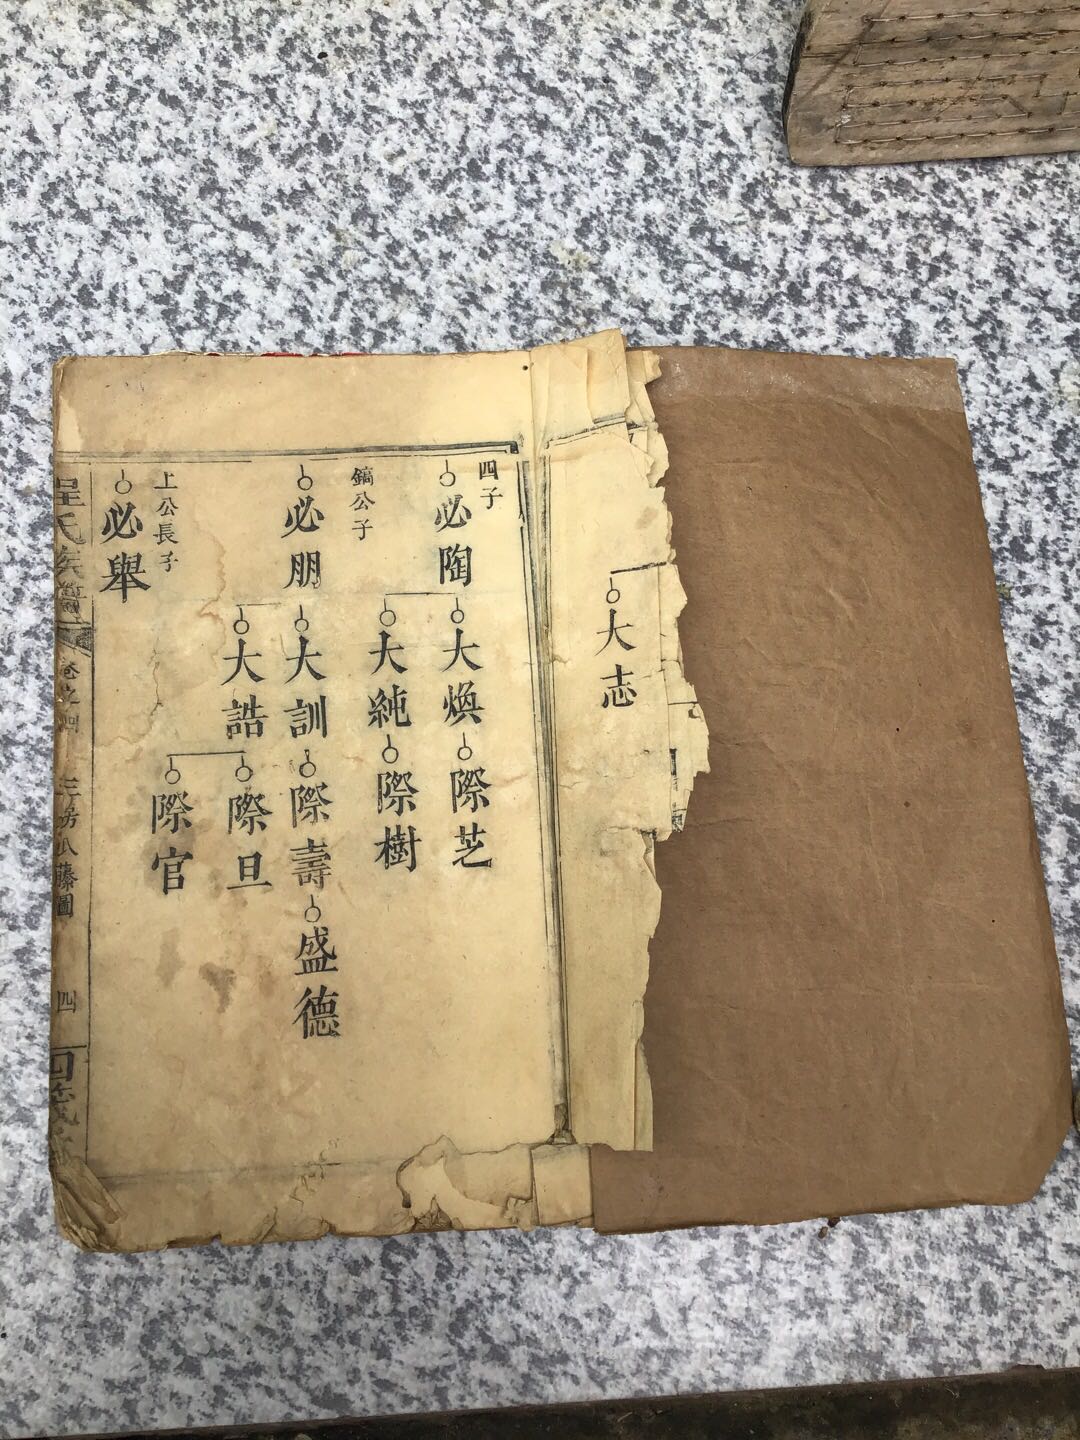 大志
四子
必陶
大煥
際芝
大純
際樹
鎬公子
必朋
大訓
際壽
盛德
大誥
際旦
際官
上公長子
必舉
氏族譜
卷之四
三房瓜藤圖
四